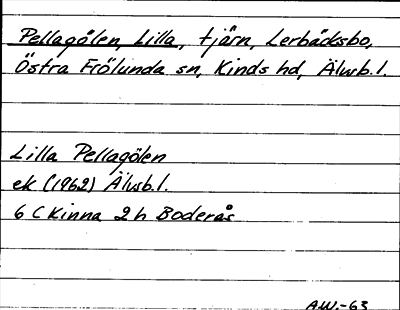 Pellagölen, Lilla, tjärn, Lerbäcksbo,
Östra Frölunda sn, Kinds hd, Älvsb.l.
Lilla Pellagölen
ek (1962) Älvsb.l.
6 C Kinna 2 h Boderås
A.W.-63